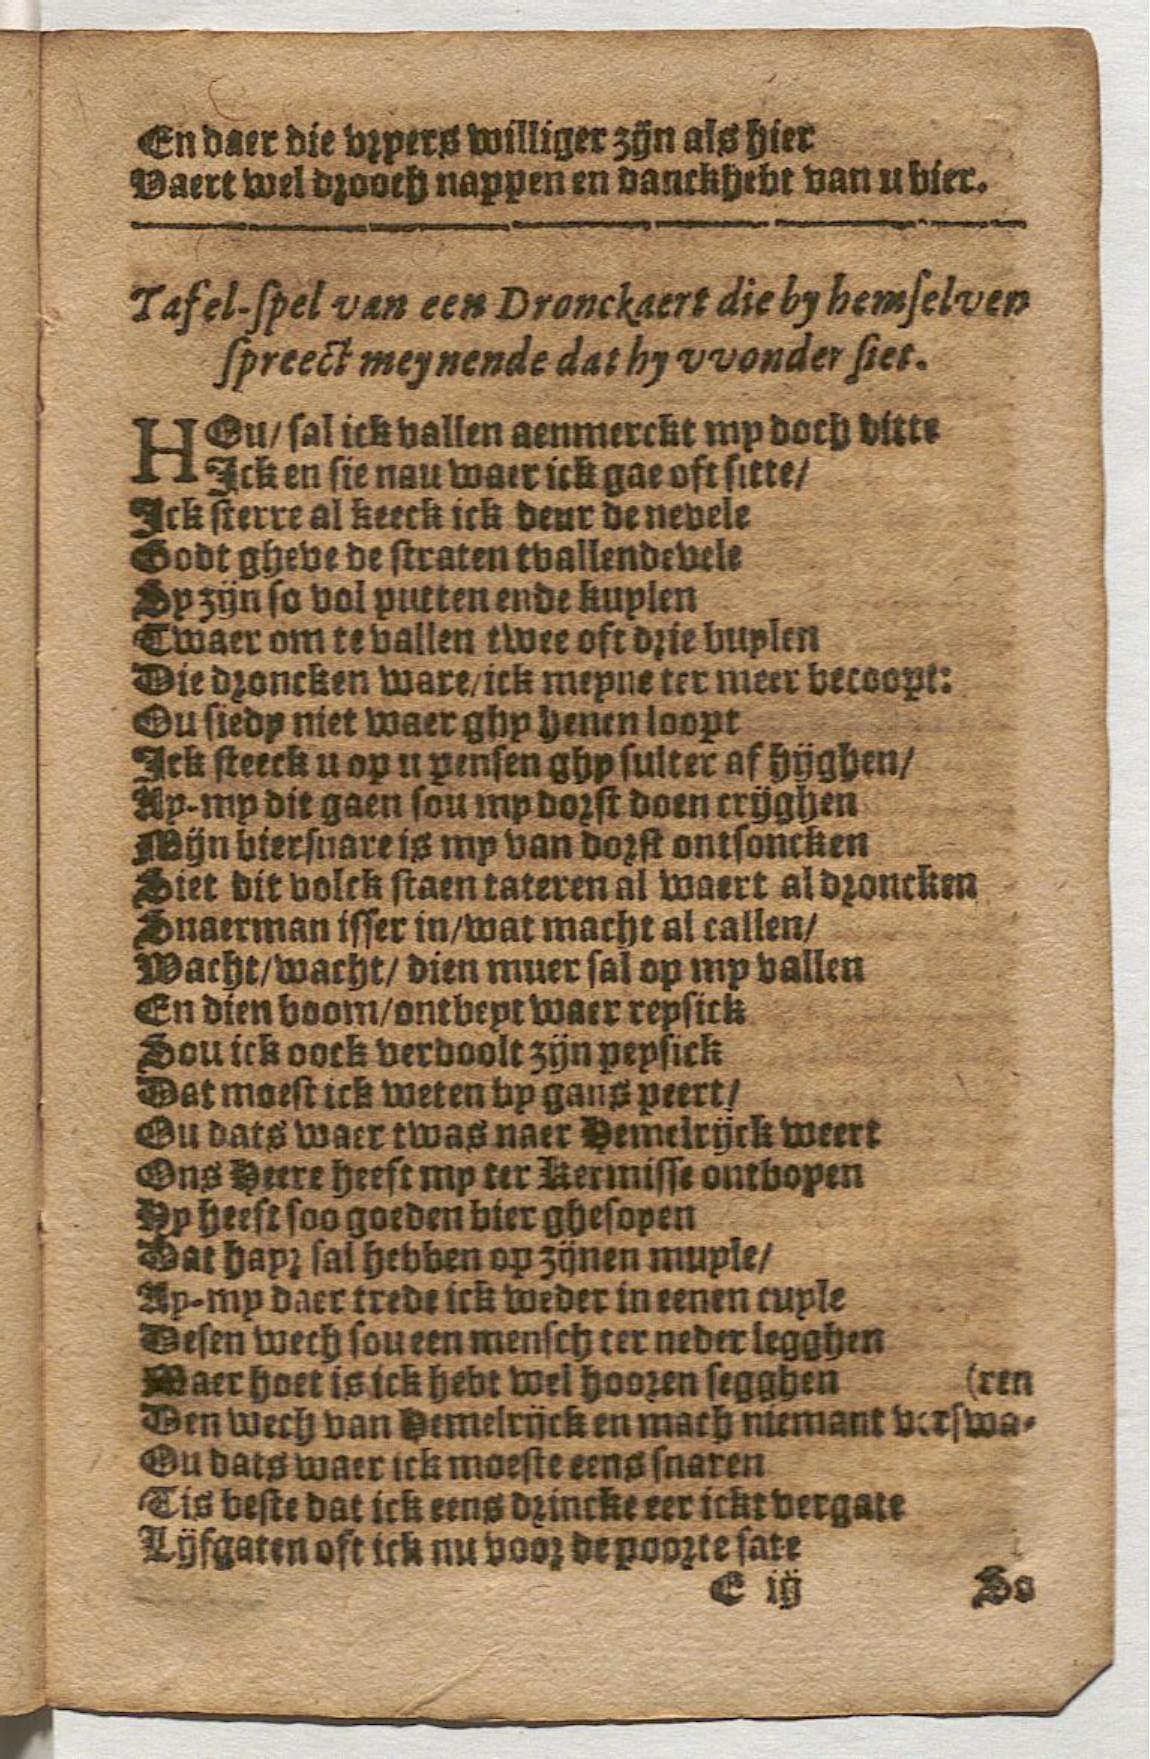 En daer die vrpers williger zijn als hier
Vaert wel drooch nappen en danckhebt van u bier.
Tafel-ſpel van een Dronckaert die by hemſelven
ſpreect meynende dat hy vvonder ſiet.
HOu/ ſal ick vallen aenmerckt my doch ditte
Ick en ſie nau waer ick gae oft ſitte/
Ick ſterre al keeck ick deur de nevele
Godt gheve de ſtraten tvallendevele
Sy zijn ſo vol putten ende kuylen
Twaer om te vallen twee oft drie buylen
Die droncken ware/ick meyne ter meer becoopt:
Ou ſiedy niet waer ghy henen loopt
Ick ſteeck u op u penſen ghy ſulter af hijghen/
Ay-my dit gaen ſou my dorſt doen crijghen
Mijn bierſnare is my van dorſt ontſoncken
Siet dit volck ſtaen tateren al waert al droncken
Snaerman iſſer in/wat macht al callen/
Wacht/wacht/ dien muer ſal op my vallen
En dien boom/ontbeyt waer reyſick
Sou ick oock verdoolt zijn peyſick
Dat moeſt ick weten by gans peert/
Ou dats waer twas naer Hemelrijck weert
Ons Heere heeft my ter Kermiſſe ontboyen
Hy heeft ſoo goeden bier gheſopen
Dat hayr ſal hebben op zijnen muyle/
Ay-my daer trede ick weder in eenen cuyle
Deſen wech ſou een menſch ter neder legghen
Maer hoet is ick hebt wel hooren ſegghen (ren
Den wech van Hemelrijck en mach niemant verſwa-
Ou dats waer ick moeſte eens ſnaren
Tis beſte dat ick eens drincke eer ickt vergate
Lijfgaten oft ick nu voor de poorte ſate
E ij So